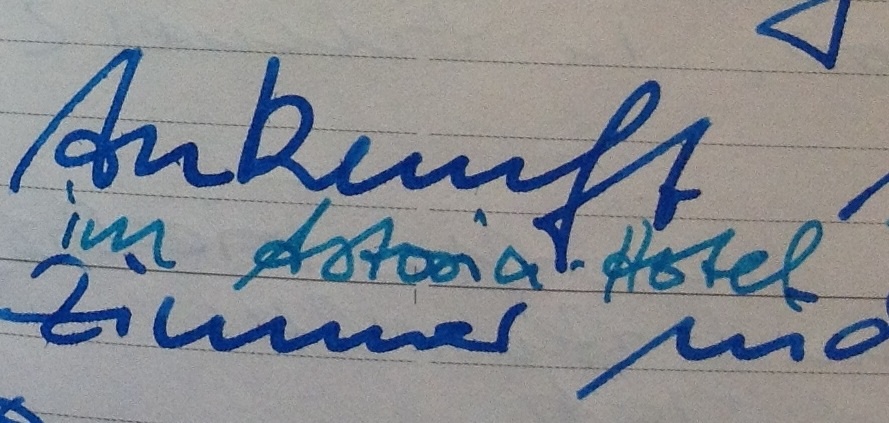 Ankunft
im Astoria-Hotel
Zimmer